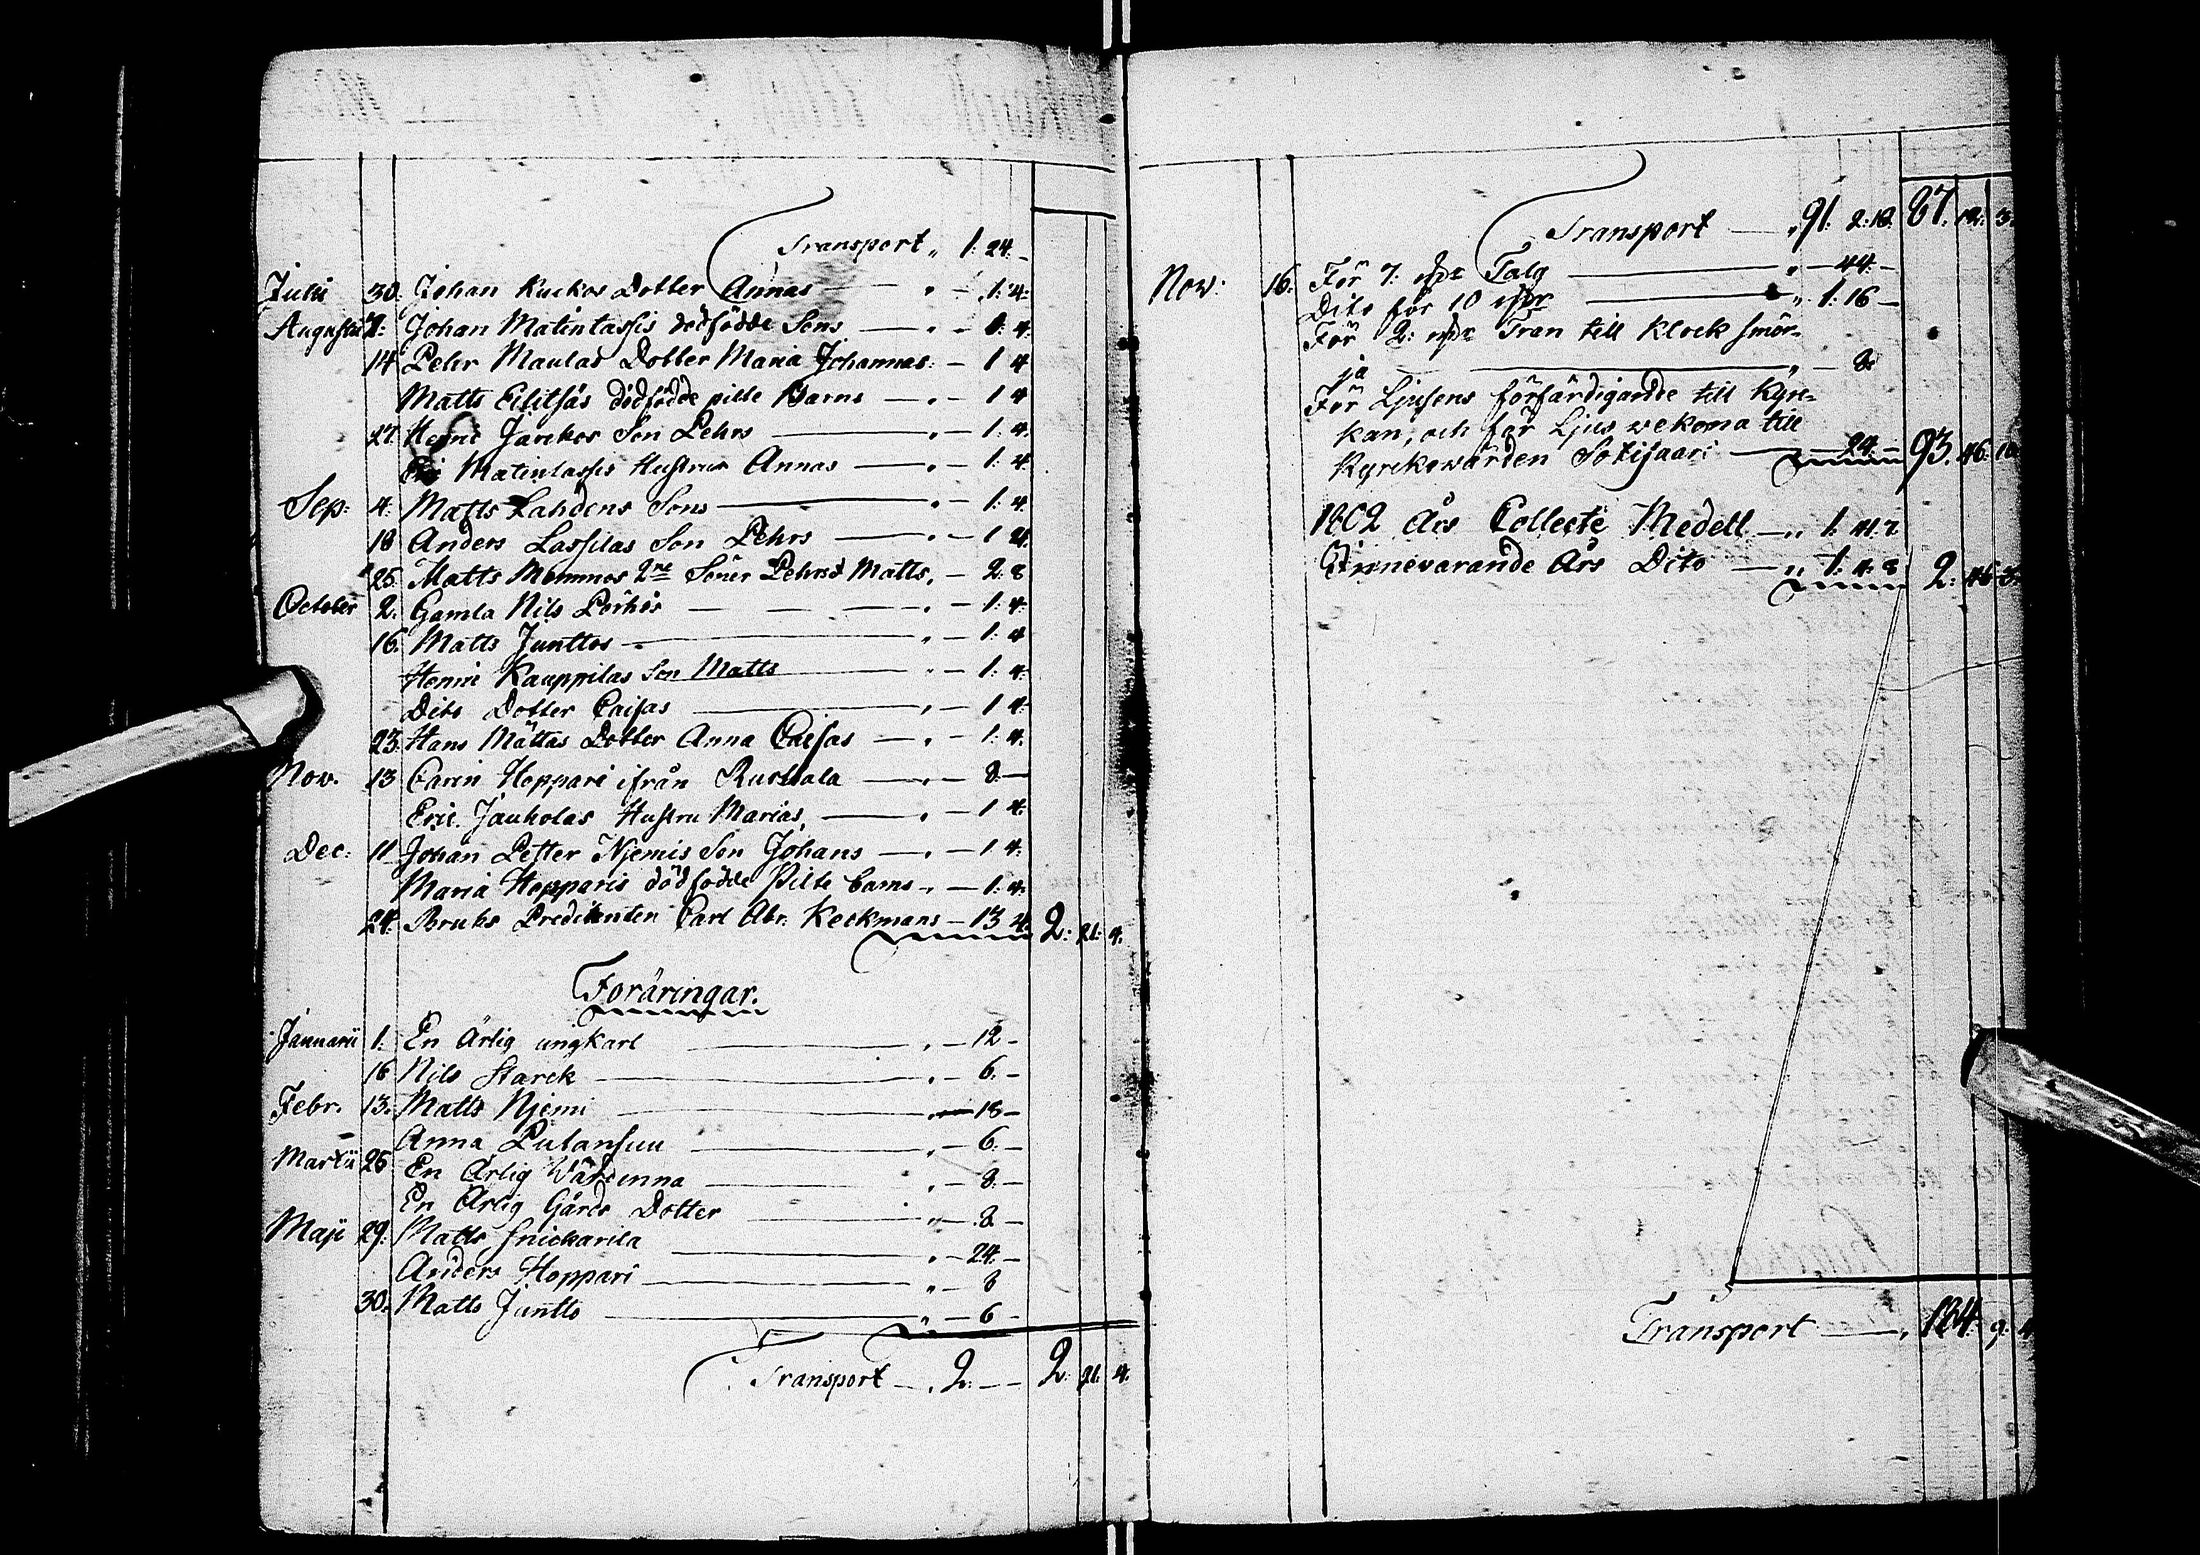 Transport „ 1: 24. –
Julii 30. Johan Kuckos Dotter Annas – „ – 1: 4.
Augusti 7: Johan Matintassis dödfödde Sons – „ – 1: 4.
14 Peter Maulas Dotter Maria Johannas – 1 4
Matts Eilitsäs dödfödde pilte Barns – „ – 1 4
27. Henric Jarckos Son Pehrs – „ – 1: 4.
Matintassis Hustrus Annas – „ – 1: 4.
Sep: 4. Matts Lahdens Sons – „ – 1: 4
18 Anders Lassilas Son Pehrs – „ – 1 4.
25. Matts Mommos 2ne Söner Pehrs & Matts. – 2: 8
October 2. Gamla Nils Perhos – „ – 1: 4.
16. Matts Junttos – „ – 1: 4
Henric Kauppilas Son Matts – „ – 1: 4.
Dito Dotter Caisas – „ – 1 4.
23. Hans Mättas Dotter Anna Caisas – „ – 1: 4.
Nov. 13 Carin Hoppari ifrån Ruckala – „ – 8 –
Eric Jauholas Hustru Marias – „ – 1 4.
Dec: 11 Johan Petter Njemis Son Johans – „ – 1 4.
Maria Hopparis dödfödde Pilte barns – „ – 1: 4.
24. Bruks Predikanten Carl Abr. Keckmans – 13 4. 2: 21: 4.
Foräringar.
Januarii 1. En Ärlig ungkarl – „ – 12 –
16 Nils Starck – „ – 6. –
Febr. 13. Matts Njemi – „ – 18 –
Anna Pulansuu – „ – 6. –
Martii 25 En Ärlig Värdinna – „ – 8. –
En Ärlig Gårds Dotter – „ – 8 –
Maji 29. Matts Snickarila – „ – 24. –
Anders Hoppari – „ – 8
30. Matts Juntto – „ – 6 –
Transport – „ 2. – – 2. 21. 4.
Transport – „ 91. 2: 18. 87. 12. 3.
Nov: 16. För 7: Talg – „ – 44. –
Dito för 10 – „ 1: 16 –
För 2: Tran till Klock smör-
ja – „ – 8.
För Ljusens förfärdigande till Kyr-
kan, och för Ljus wekorna till
Kyrckowärden Sotisaari – 24. – 93. 46. 10
1802 Års Collecte Medell – „ 1: 41 7.
Innevarande Års Dito – „ 1: 4. 8 2: 46 3.
Transport – „ 184: 9. 4